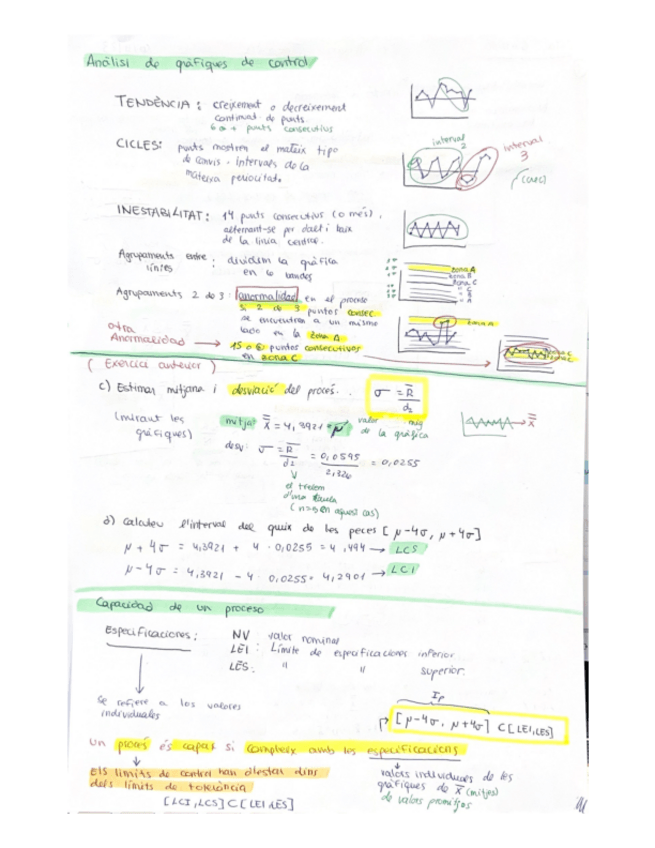 Anàlisi de gràfiques de control
TENDÈNCIA: creixement o decreixement
continuat de punts.
6 o + punts consecutius
CICLES: punts mostren el mateix tipo
de canvis · intervals de la
mateixa periocitat.
interval
2
interval
3
INESTABILITAT: 14 punts consecutius (o més),
alternant-se per dalt i baix
de la línia central.
Agrupaments entre
línies : dividim la gràfica
en 6 bandes
zona A
zona B
zona C
= C
= B
= A
Agrupaments 2 de 3: anormalidad en el proceso
si 2 de 3 puntos consec.
se encuentran a un mismo
lado en la zona A
zona A
otra
Anormalidad → 15 o puntos consecutivos
en zona C
(Exercici anterior)
c) Estimar mitjana i desviació del procés.
σ = R̅/d₂
(mirant les
gràfiques)
mitja: x̿ = 4,3921 = μ valor mig
de la gràfica
x̿
desv: σ = R̅/d2 = 0,0595/2,326 = 0,0255
el treiem
d'una taula
(n=5 en aquest cas)
d) Calculeu l'interval del gruix de les peces [μ-4σ, μ+4σ]
μ + 4σ = 4,3921 + 4 · 0,0255 = 4,494 → LCS
μ - 4σ = 4,3921 - 4 · 0,0255 = 4,2901 → LCI
Capacidad de un proceso
Especificaciones: NV valor nominal
LEI: Límite de especificaciones inferior
LES: " " superior.
se refiere a los valores
individuales
Ip
[μ-4σ, μ+4σ] ⊂ [LEI, LES]
Un procés és capaç si compleix amb les especificacions
Els límits de control han d'estar dins
dels límits de tolerància
[LCI, LCS] ⊂ [LEI, LES]
valors individuals de les
gràfiques de x̅ (mitjes)
de valors promitjos